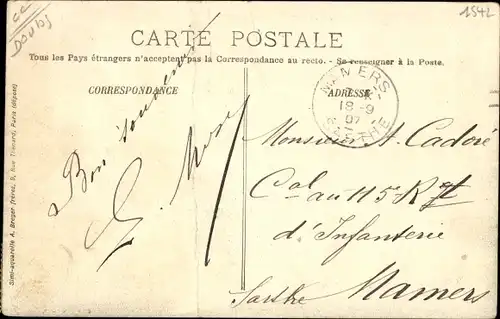 cc
DOUBS
1542
CARTE POSTALE
Tous les Pays étrangers n'acceptent pas la Correspondance au recto. - Se renseigner à la Poste.
CORRESPONDANCE
ADRESSE
MAMERS
18-9
07
SARTHE
Bon souvenir
Monsieur A. Cadoré
Cal au 115 Rgt
d'Infanterie
Mamers
Sarthe
Simi-aquarelle A. Breger frères, 9, Rue Thénard, Paris (déposé)